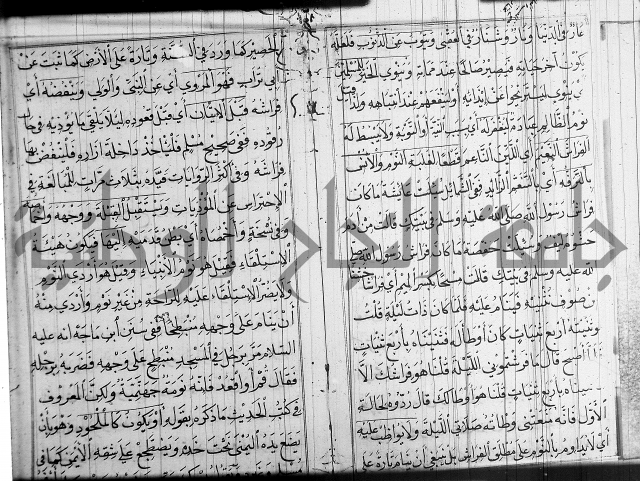 عار في الدنيا ونار وشنار في العقبى ويتوب عن الذنوب فلعله
يكون آخر حياته فيصير صالحا عند مماته وينوي الخير للمسلمين
نوم الظالم عبادة ليغفر له أي بسبب النية أو التوبة ولا يبسط له
الفراش النعيم أي اللين الناعم قطعا لغلبة النوم والأنس
بالترفه أي بالتنعم الزائد ففي الشمائل سئلت عائشة ما كان
فراش رسول الله صلى الله عليه وسلم في بيتك قالت من أدم
حشوه ليف وسئلت حفصة ما كان فراش رسول الله صلى
الله عليه وسلم في بيتك قالت مسحا بكسر الميم أي فراشا
من صوف نثنيه ثنيتين فينام عليه فلما كان ذات ليلة قلت
لو ثنيته أربع ثنيات كان أوطأ له فثنيناه بأربع ثنيات
فلما أصبح قال ما فرشتموني الليلة قلنا هو فراشك إلا أنا
ثنيناه بأربع ثنيات قلنا هو أوطأ لك قال ردوه لحالته
الأول فانه منعتني وطأته صلاتي الليلة ولا يواظب عليه
أي لا يداوم بالنوم على مطلق الفراش بل ينبغي أن ينام تارة على
الحصير كما ورد في السنة وتارة على الأرض كما ثبت عن
أبي تراب فهو المروي أي عن النبي والولي وينفضه أي
فراشه قبل الاتيان أي قبل قعوده ليلا يلقى ما يؤذيه في حال
رقوده ففي صحيح مسلم فليأخذ داخلة ازاره فلينفض بها
فراشه وفي أكثر الروايات قيده بثلاث مرات للمبالغة في
الاحتراس عن المؤذيات ويستقبل القبلة ووجهه وأخمصاه
وفي نسخة وأخمصاه أي بطن قدميه إليها فيكون هيئة
الاستلقاء فقيل هو نوم الأنبياء وقيل هو أردى النوم
ولا يضر الاستلقاء عليه للراحة من غير نوم وأردى منه
أن ينام على وجهه منبطحا ففي سنن ابن ماجه انه عليه
السلام مر برجل في المسجد منبطح على وجهه فضربه برجله
فقال قم أو اقعد فانه نومة جهنمية ولكن المعروف
في كتب الحديث ما ذكره بقوله أو يكون كالملحود وهو بأن
يضع يده اليمنى تحت خده ويضطجع على شقه الأيمن كما في
جامعة الإمام